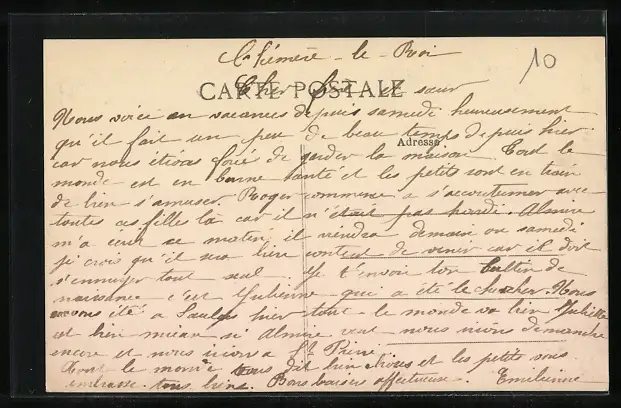 St Fiémère - le - Roi
10
Cher frère et sœur
CARTE POSTALE
Adresse
Nous voici en vacances depuis samedi heureusement
qu'il fait un peu de beau temps depuis hier
car nous étions forcé de garder la maison Tout le
monde est en bonne santé et les petits sont en train
de bien s'amuser. Roger commence a s'accoutumer avec
toutes ces filles là car il n'était pas hardi. Almire
m'a écrit ce matin il viendra demain ou samedi
je crois qu'il sera bien content de venir car il doit
s'ennuyer tout seul Je t'envoie ton bultin de
naissance c'est Julienne qui a été le chercher. Nous
avons été a Saulge hier tout le monde va bien Juliette
est bien mieux si Almire veut nous irons dimanche
encore et nous irons a St Pierre.
Tout le monde vous dit bien choses et les petits vous
embrasse tous bien. Bons baisers affectueux. Emilienne